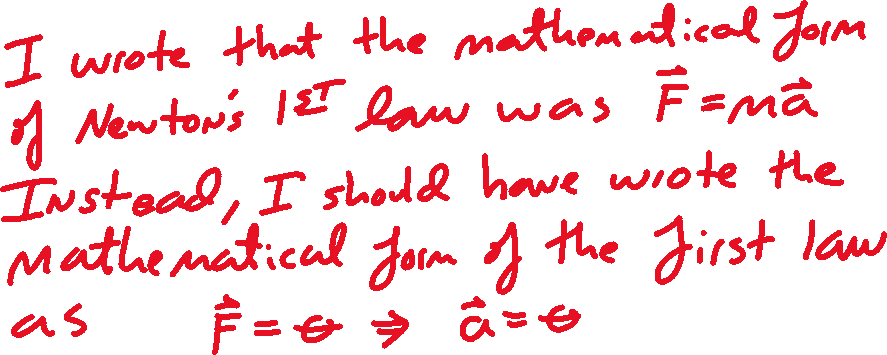 I wrote that the mathematical form
of Newton's 1ST law was F⃗ = ma⃗
Instead, I should have wrote the
mathematical form of the first law
as F⃗ = 0 ⇒ a⃗ = 0